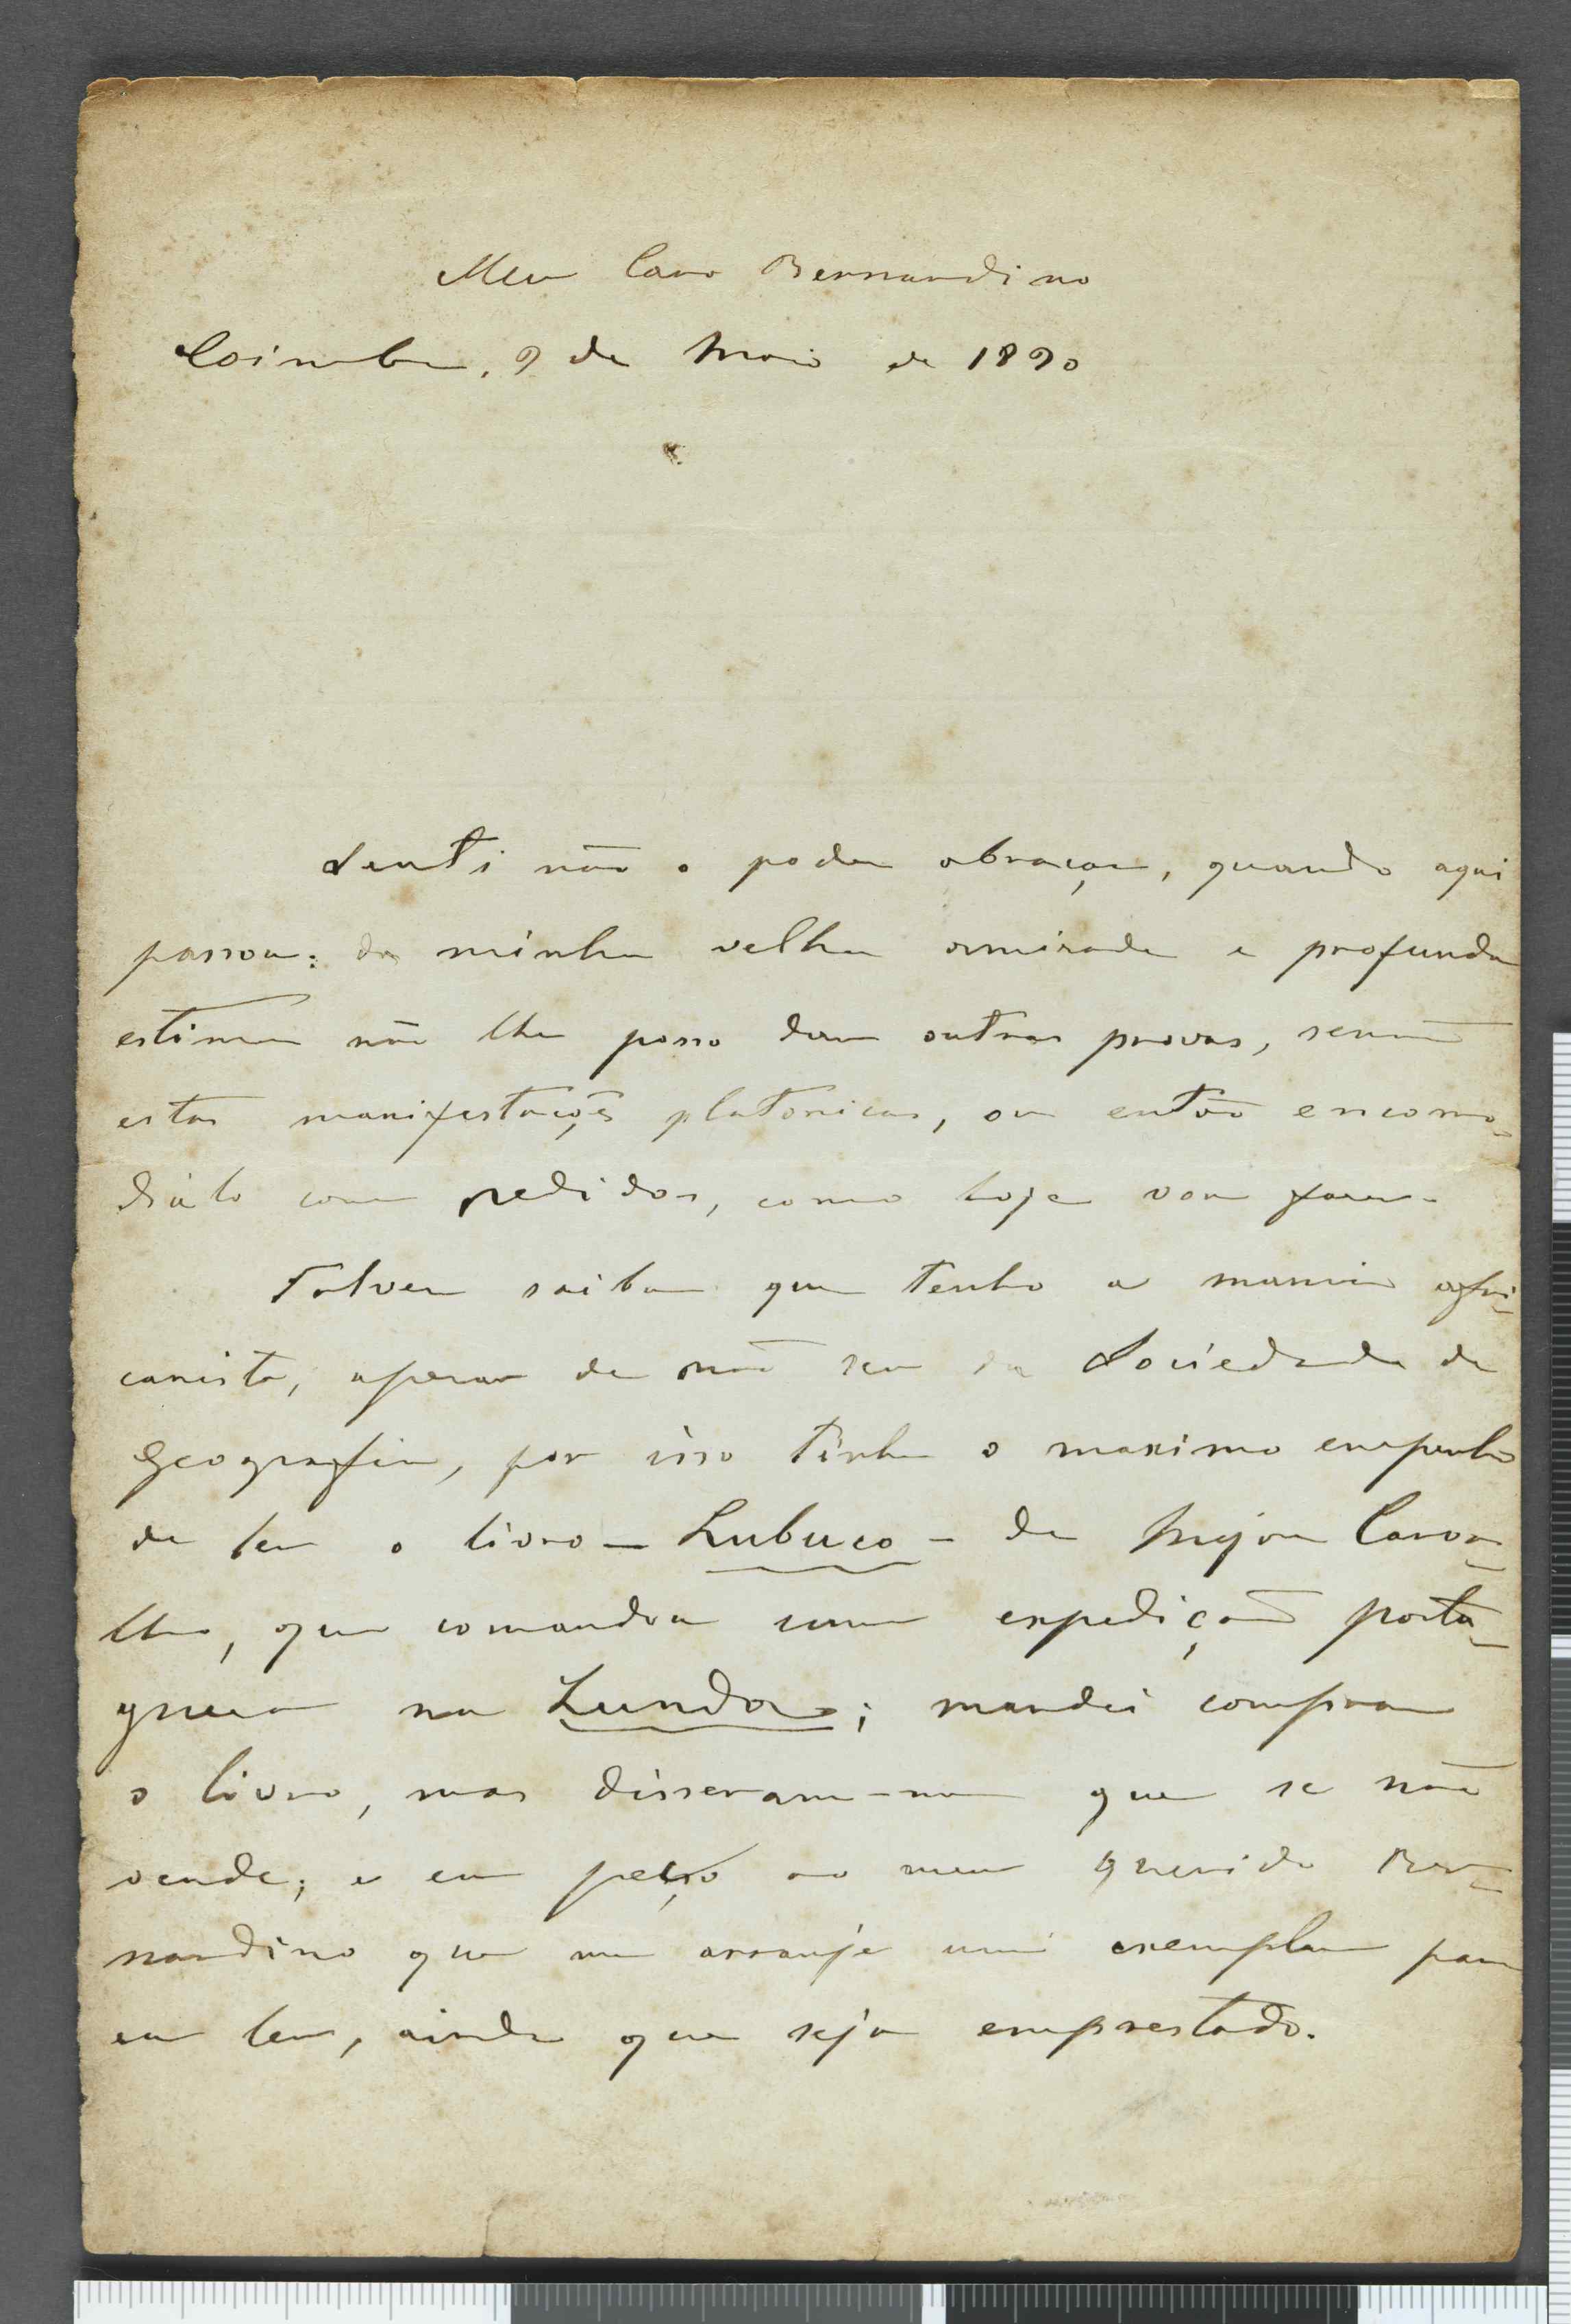 Meu Caro Bernardino
Coimbra, 9 de Maio de 1890
Senti não o poder abraçar, quando aqui
passou: da minha velha amisade e profunda
estima não lhe posso dar outras provas, senão
estas manifestações platonicas, ou então encomo-
dalo com pedidos, como hoje vou fazer.
Talvez saiba que tenho a mania afri-
canista, apesar de não ser da Sociedade de
Geografia, por isso tinha o maximo empenho
de ler o livro – Lubuco – do Major Carva-
lho, que comandou uma expedição portu-
gueza na Lunda; mandei comprar
o livro, mas disseram-me que se não
vende; e eu peço ao meu querido Ber-
nardino que me arranje um exemplar para
eu ler, ainda que seja emprestado.